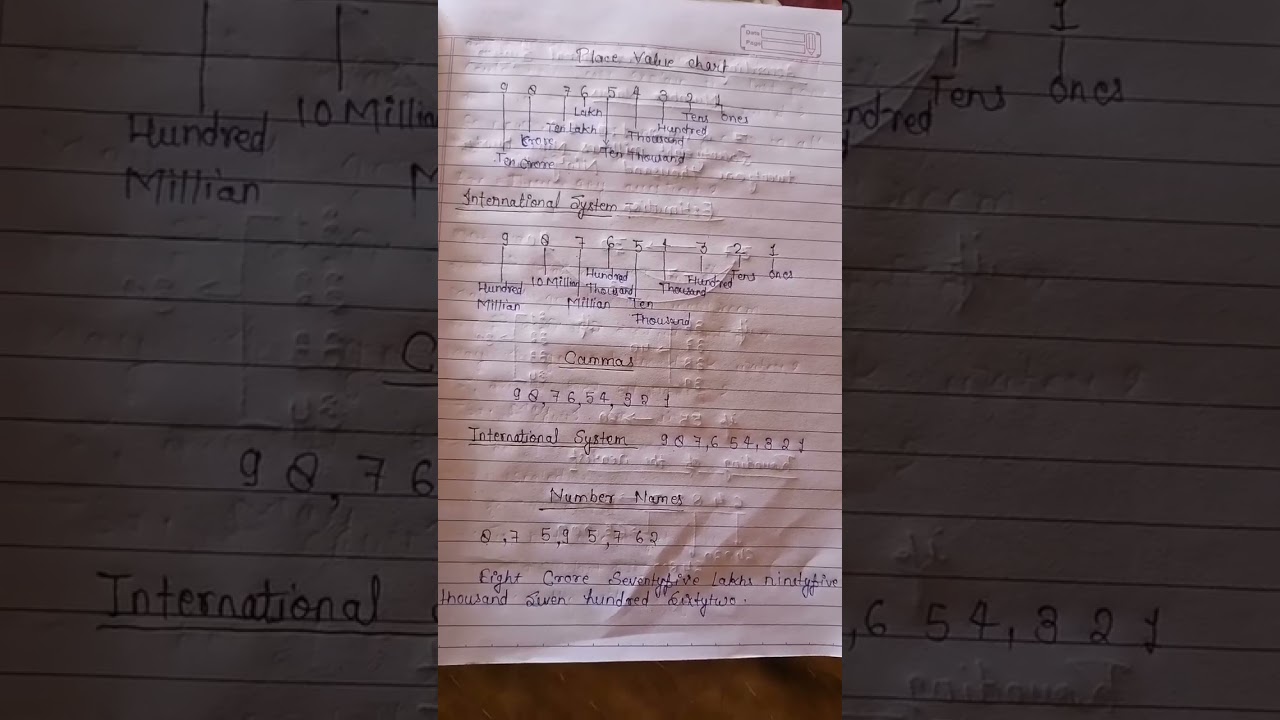 Date
Page
Place Value chart
9 8 7 6 5 4 3 2 1
Lakh Tens Ones
Ten Lakh Thousand Hundred
Crore Ten Thousand
Ten Crore
International System
9 8 7 6 5 4 3 2 1
Hundred Million 10 Million Million Hundred Thousand Ten Thousand Thousand Hundred Tens ones
Cammas
98,76,54,321
International System 987,654,321
Number Names
8,75,95,762
Eight Crore Seventyfive Lakhs ninetyfive
thousand Seven hundred Sixtytwo.